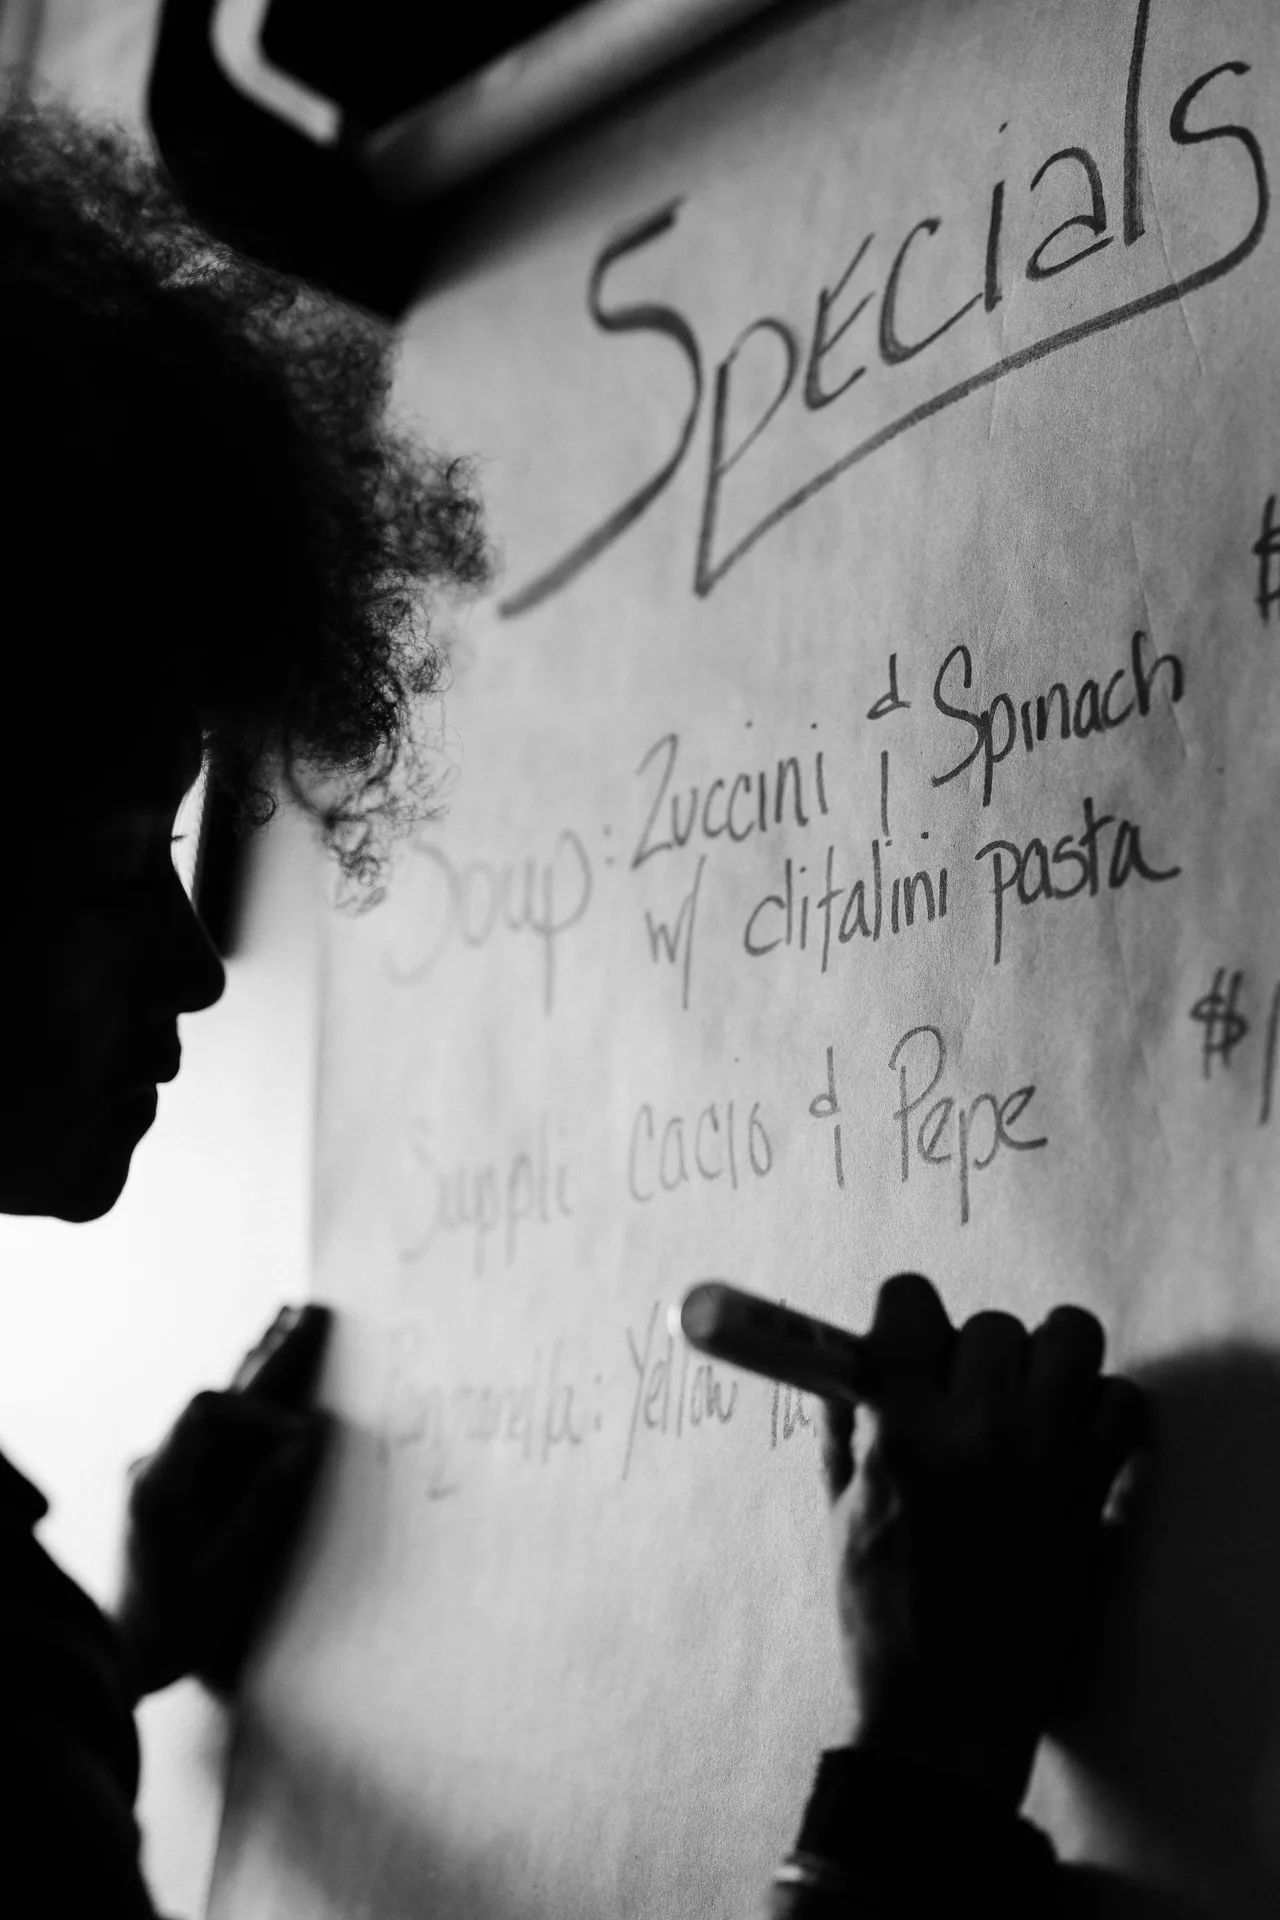 Specials
$
Soup: Zuccini & Spinach
w/ ditalini pasta
$1
Suppli cacio & Pepe
Panzarella: Yellow